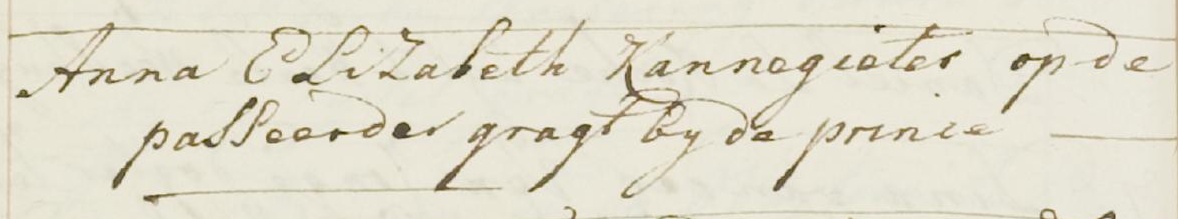 Anna ELiZabeth Kannegieter op de
passeerder gragt by de prince